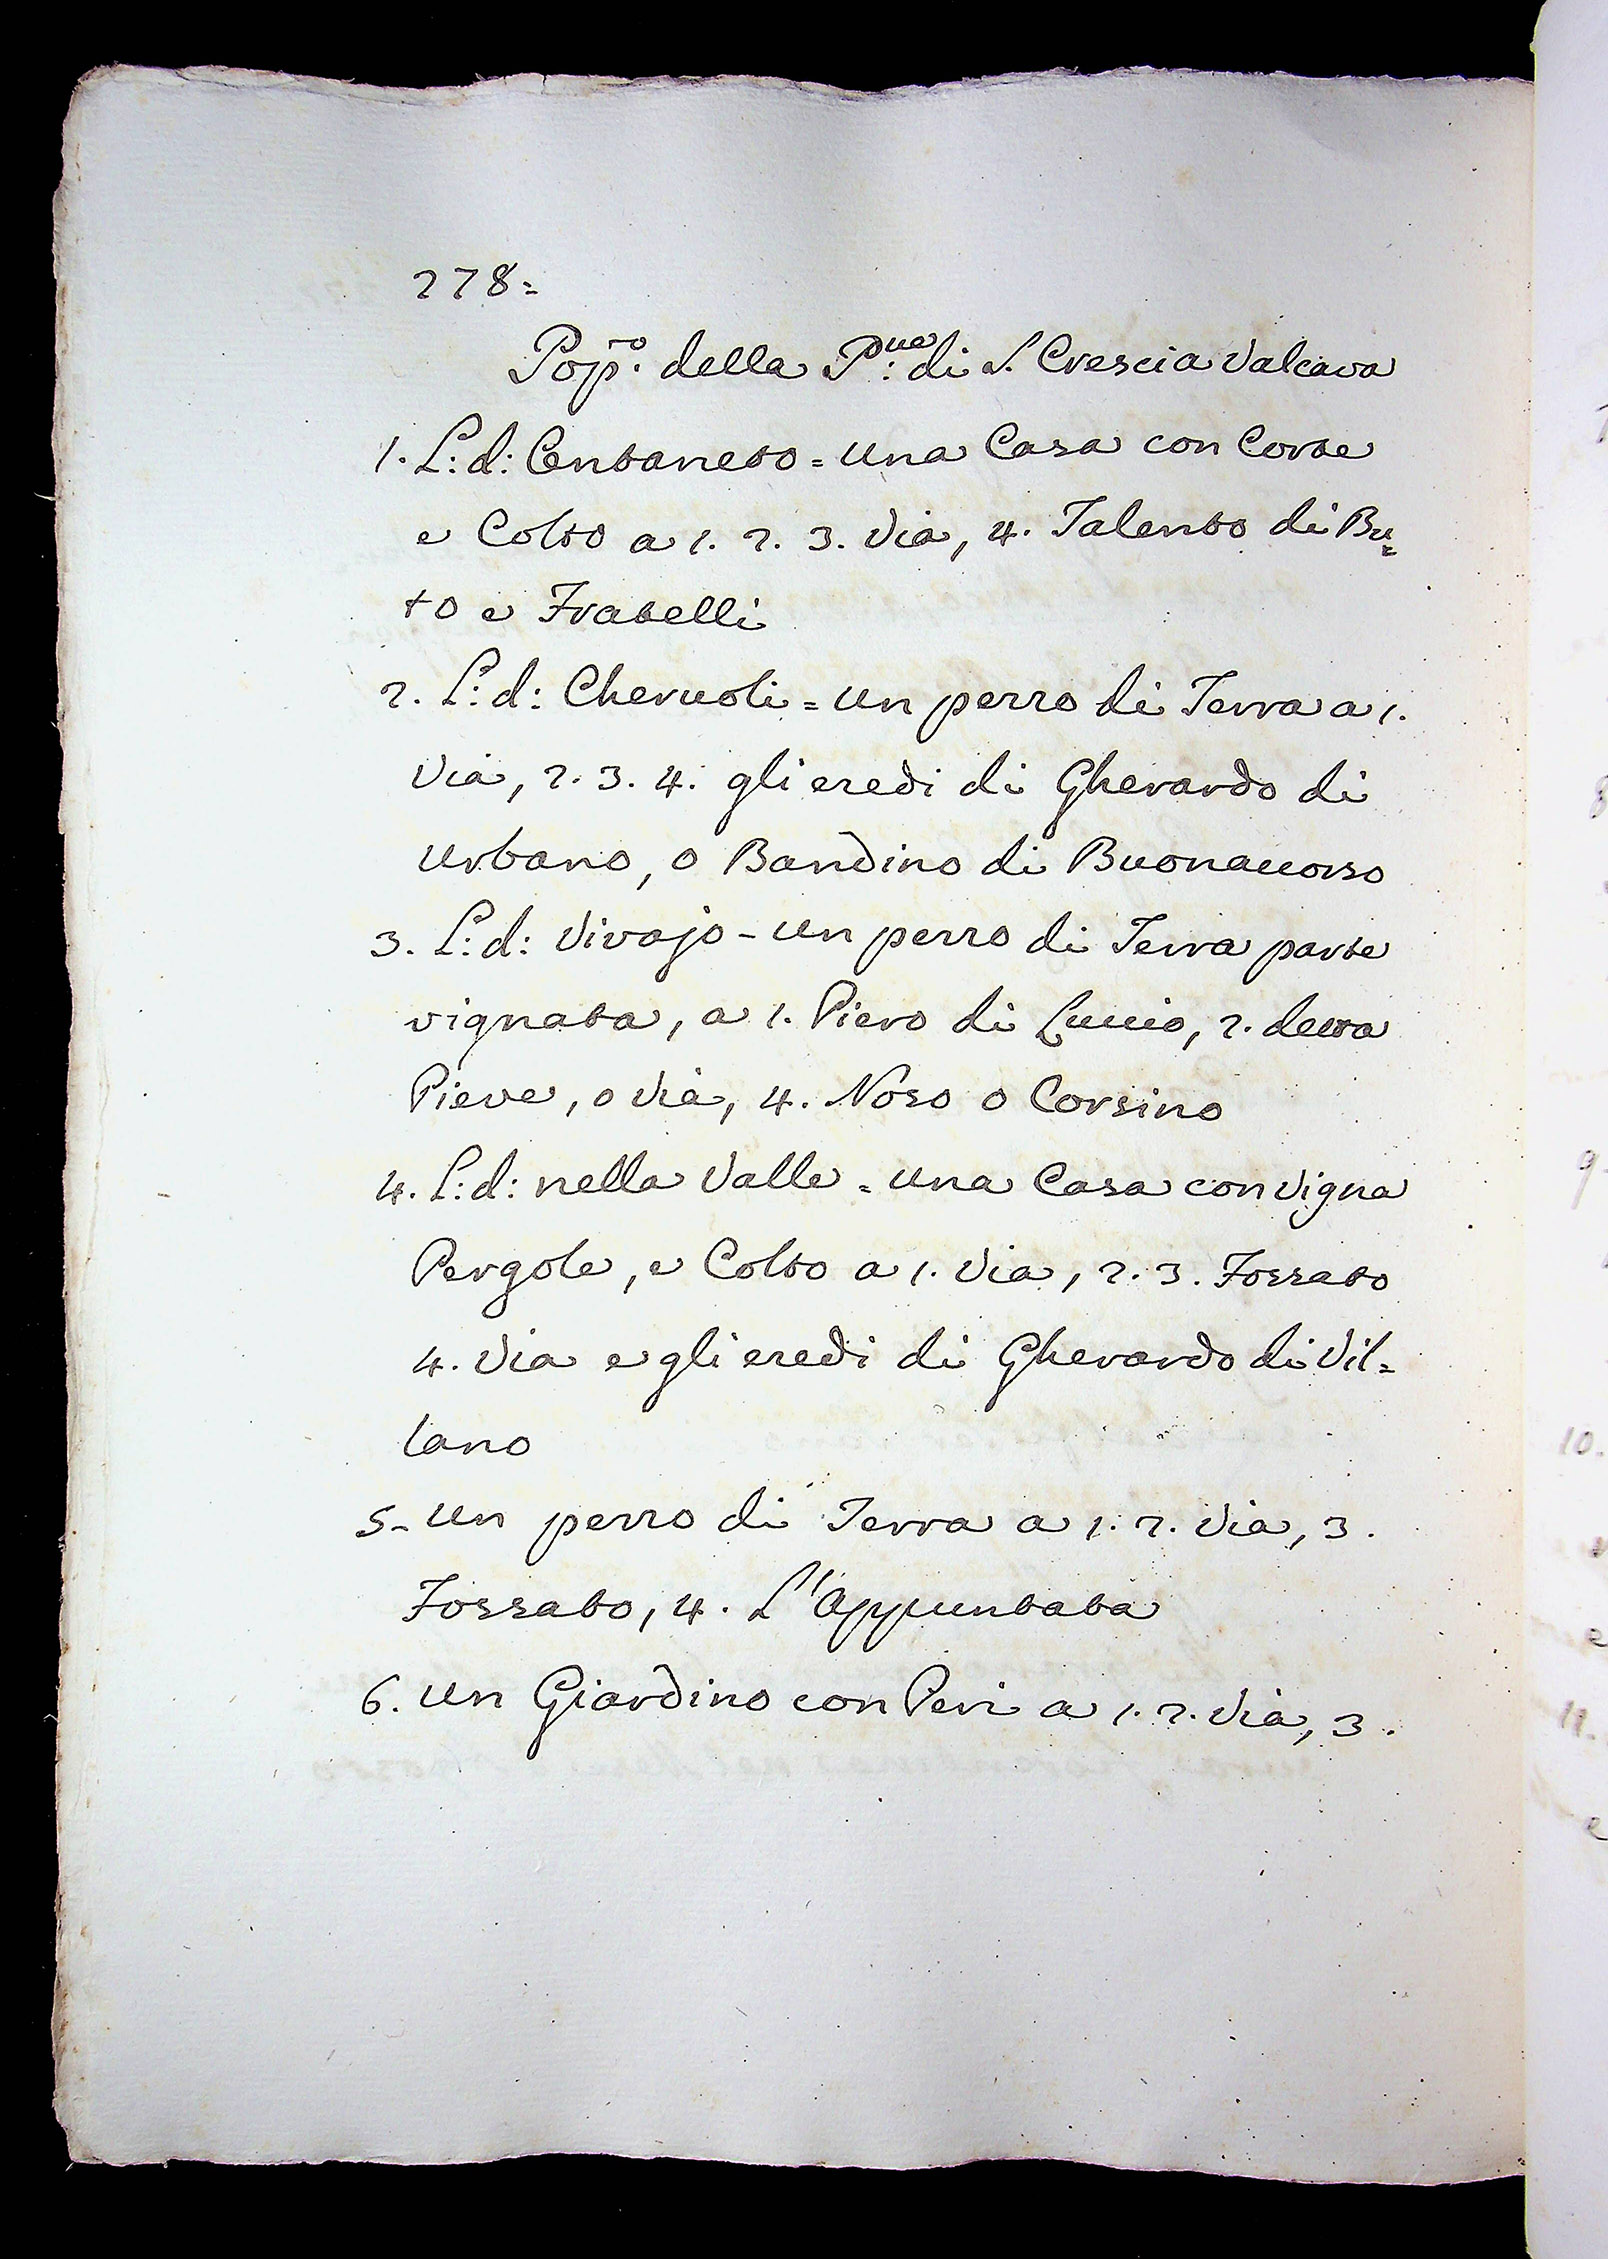 278=
Pop.o della P:ve di S. Crescia Valcava
1. L:d: Centaneto = una Casa con Corte
e Colto a 1. 2. 3. Via, 4. Talento di Bu=
to e Fratelli
2. L:d: Cheruoli = un pezzo di Terra a 1.
Via, 2. 3. 4. gli eredi di Gherardo di
Urbano, o Bandino di Buonaccorso
3. L:d: Vivajo - un pezzo di Terra parte
vignata, a 1. Piero di Luccio, 2. detta
Pieve, o Via, 4. Noso o Corsino
4. L:d: nella Valle = una Casa con Vigna
Pergole, e Colto a 1. Via, 2. 3. Fossato
4. Via e gli eredi di Gherardo di Vil=
lano
5- un pezzo di Terra a 1. 2. Via, 3.
Fossato, 4. L'Appuntata
6. un Giardino con Peri a 1. 2. Via, 3.
8
9
10.
11.